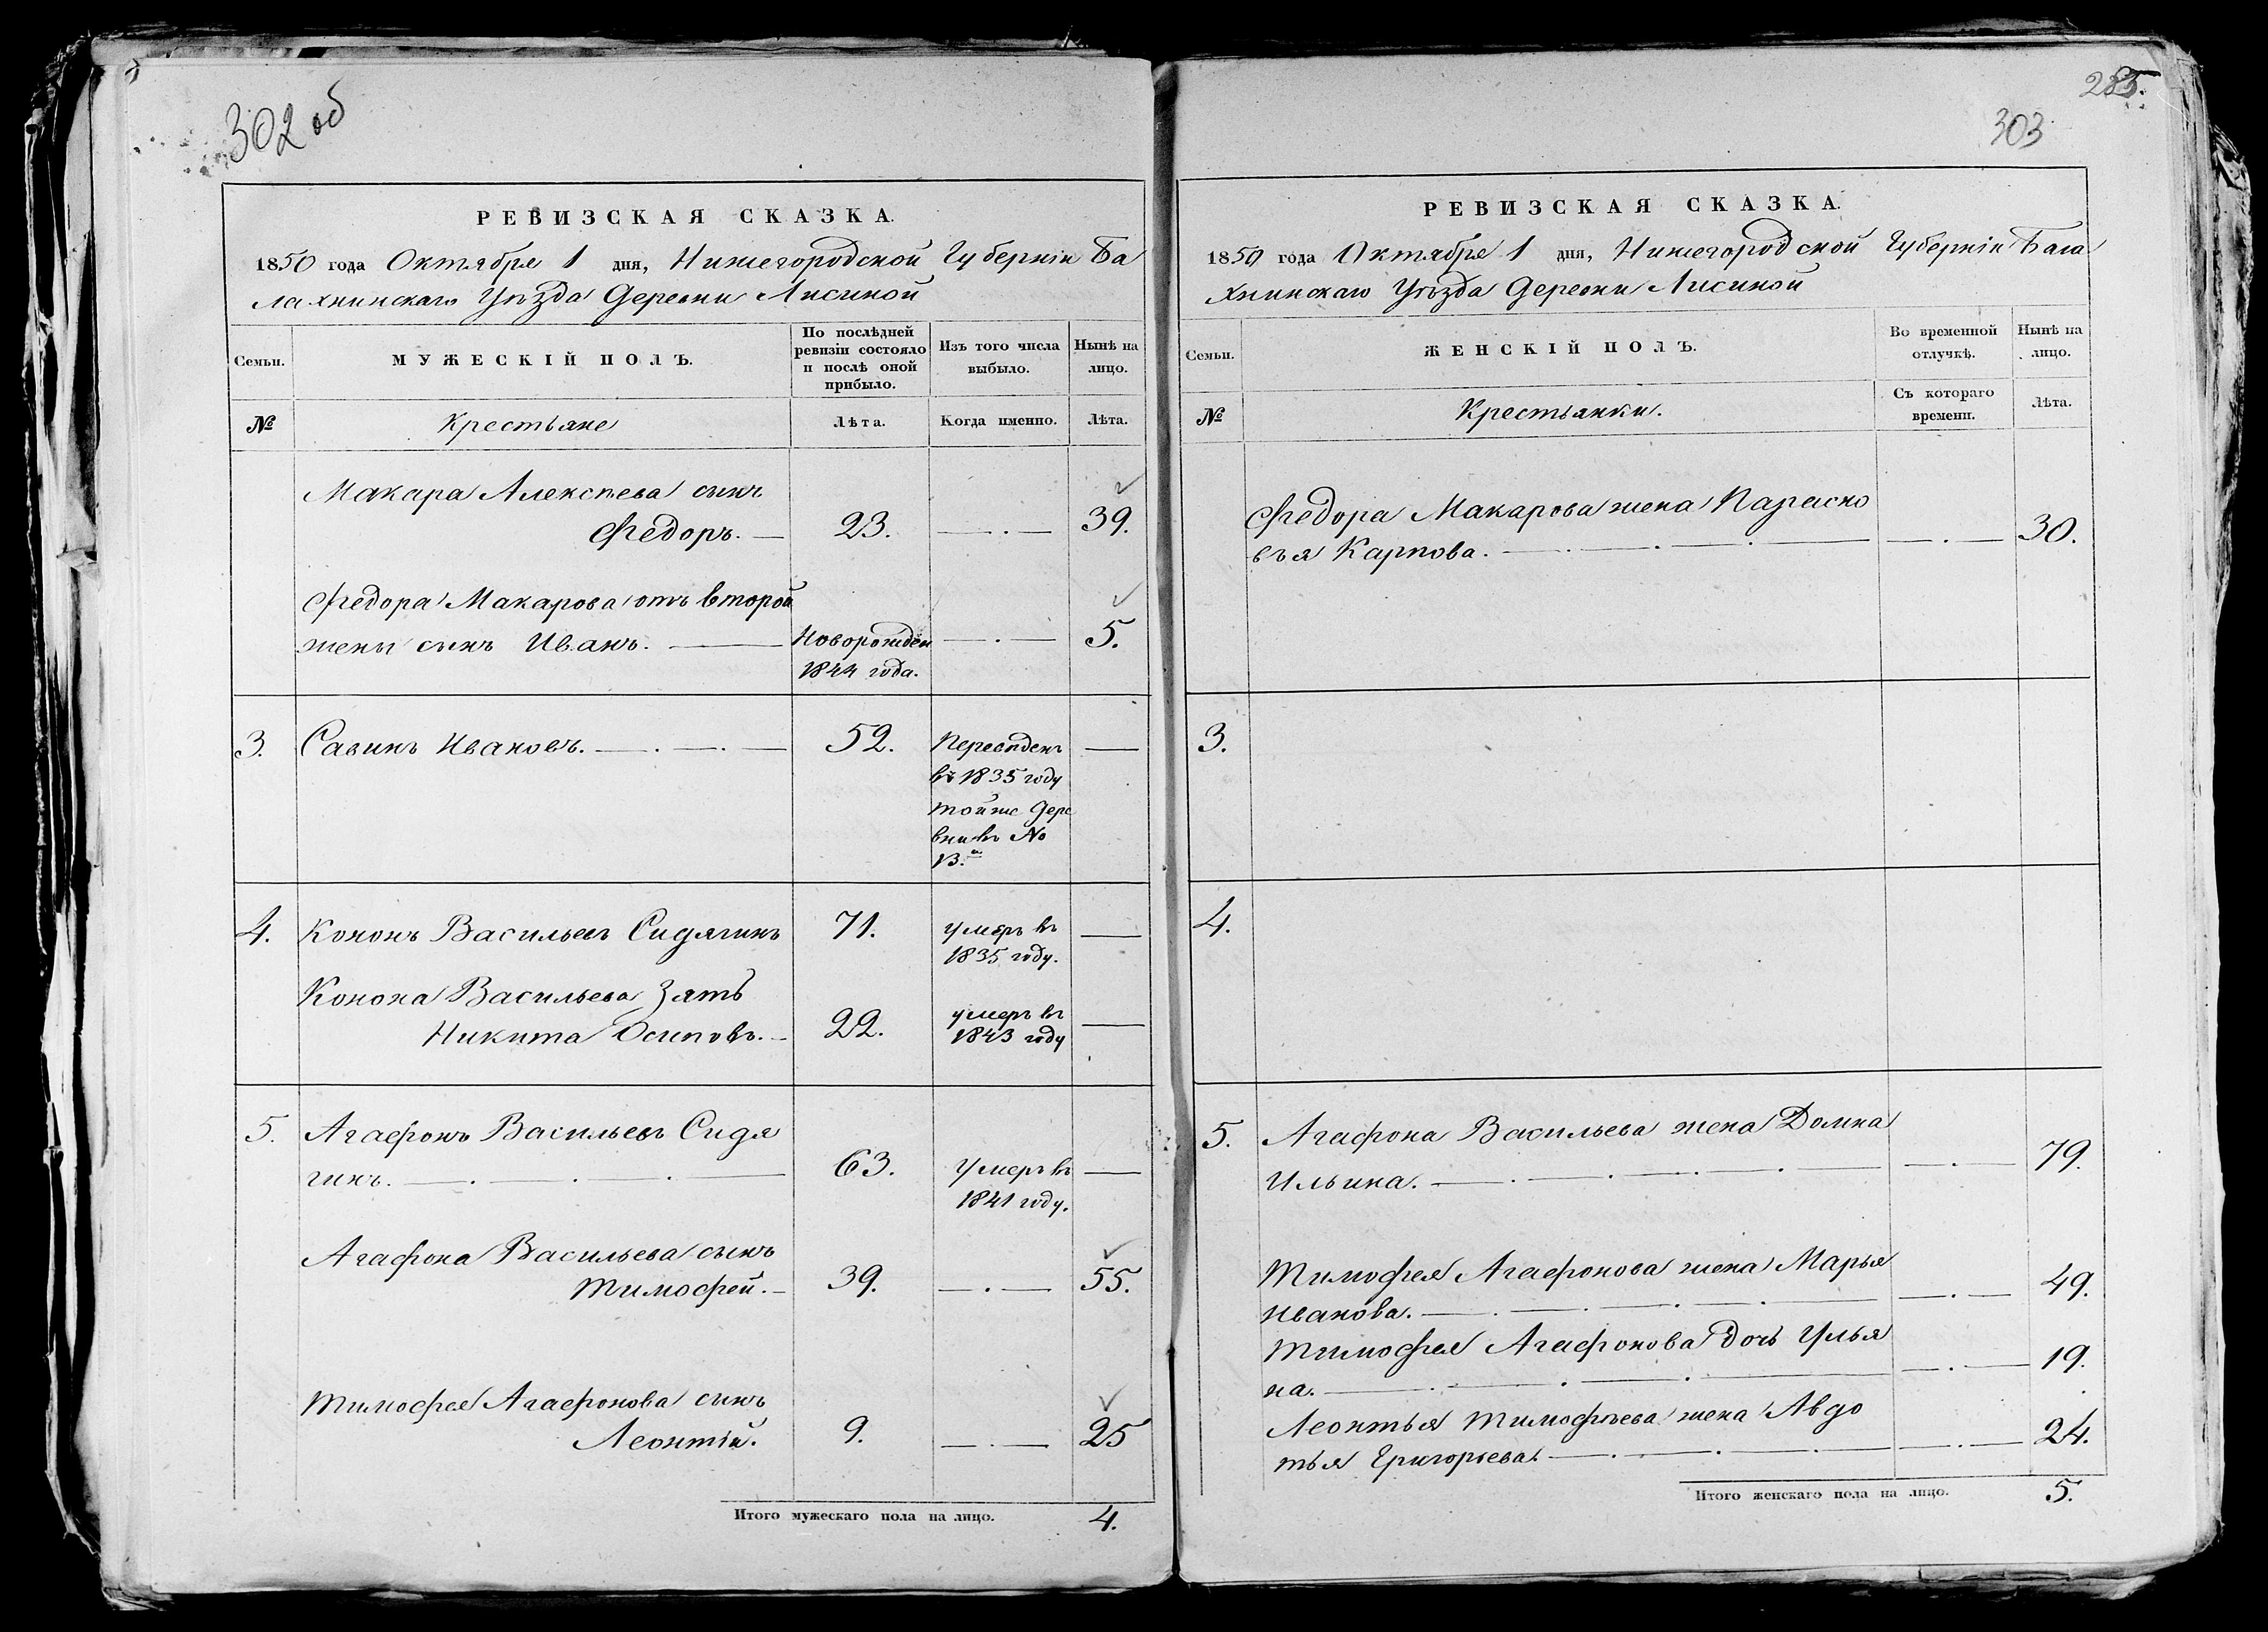 302 об
РЕВИЗСКАЯ СКАЗКА.
1850 года Октября 1 дня, Нижегородской Губерніи Ба
лахнинскаго Уѣзда Деревни Лисиной
Семьи.
МУЖЕСКІЙ ПОЛЪ.
По послѣдней
ревизіи состояло
и послѣ оной
прибыло.
Изъ того числа
выбыло.
Нынѣ на
лицо.
№
Крестьяне
Лѣта.
Когда именно.
Лѣта.
Макара Алексѣева сынъ
Ѳедоръ. — 23. — . — 39.
Ѳедора Макарова отъ второй
жены сынъ Иванъ. — Новорожден — . — 5.
1844 года.
3. Савинъ Ивановъ. — . — . — 52. Переведенъ —
въ 1835 году
тойже дере
вни въ №
13.й
4. Кононъ Васильевъ Сидягинъ 71. умеръ въ —
1835 году.
Конона Васильева Зять
Никита Осиповъ. — 22. умеръ въ —
1843 году
5. Агафонъ Васильевъ Сидя
гинъ. — 63. Умеръ въ —
1841 году.
Агафона Васильева сынъ
Тимофей. — 39. — . — 55.
Тимофея Агафонова сынъ
Леонтій. 9. — . — 25
Итого мужескаго пола на лицо. 4.
285.
303
РЕВИЗСКАЯ СКАЗКА.
1850 года Октября 1 дня, Нижегородской Губерніи Бала
хнинскаго Уѣзда Деревни Лисиной
Семьи.
ЖЕНСКІЙ ПОЛЪ.
Во временной
отлучкѣ.
Нынѣ на
лицо.
№
Крестьянки.
Съ котораго
времени.
Лѣта.
Ѳедора Макарова жена Параско
вья Карпова. — . — . — . — 30.
3.
4.
5. Агафона Васильева жена Домна
Ильина. — . — . — . — 79.
Тимофея Агафонова жена Марья
Иванова. — . — . — . — 49.
Тимофея Агафонова дочь Улья
на. — . — . — . — 19.
Леонтья Тимофѣева жена Авдо
тья Григорьева. — . — . — . — 24.
Итого женскаго пола на лицо. 5.